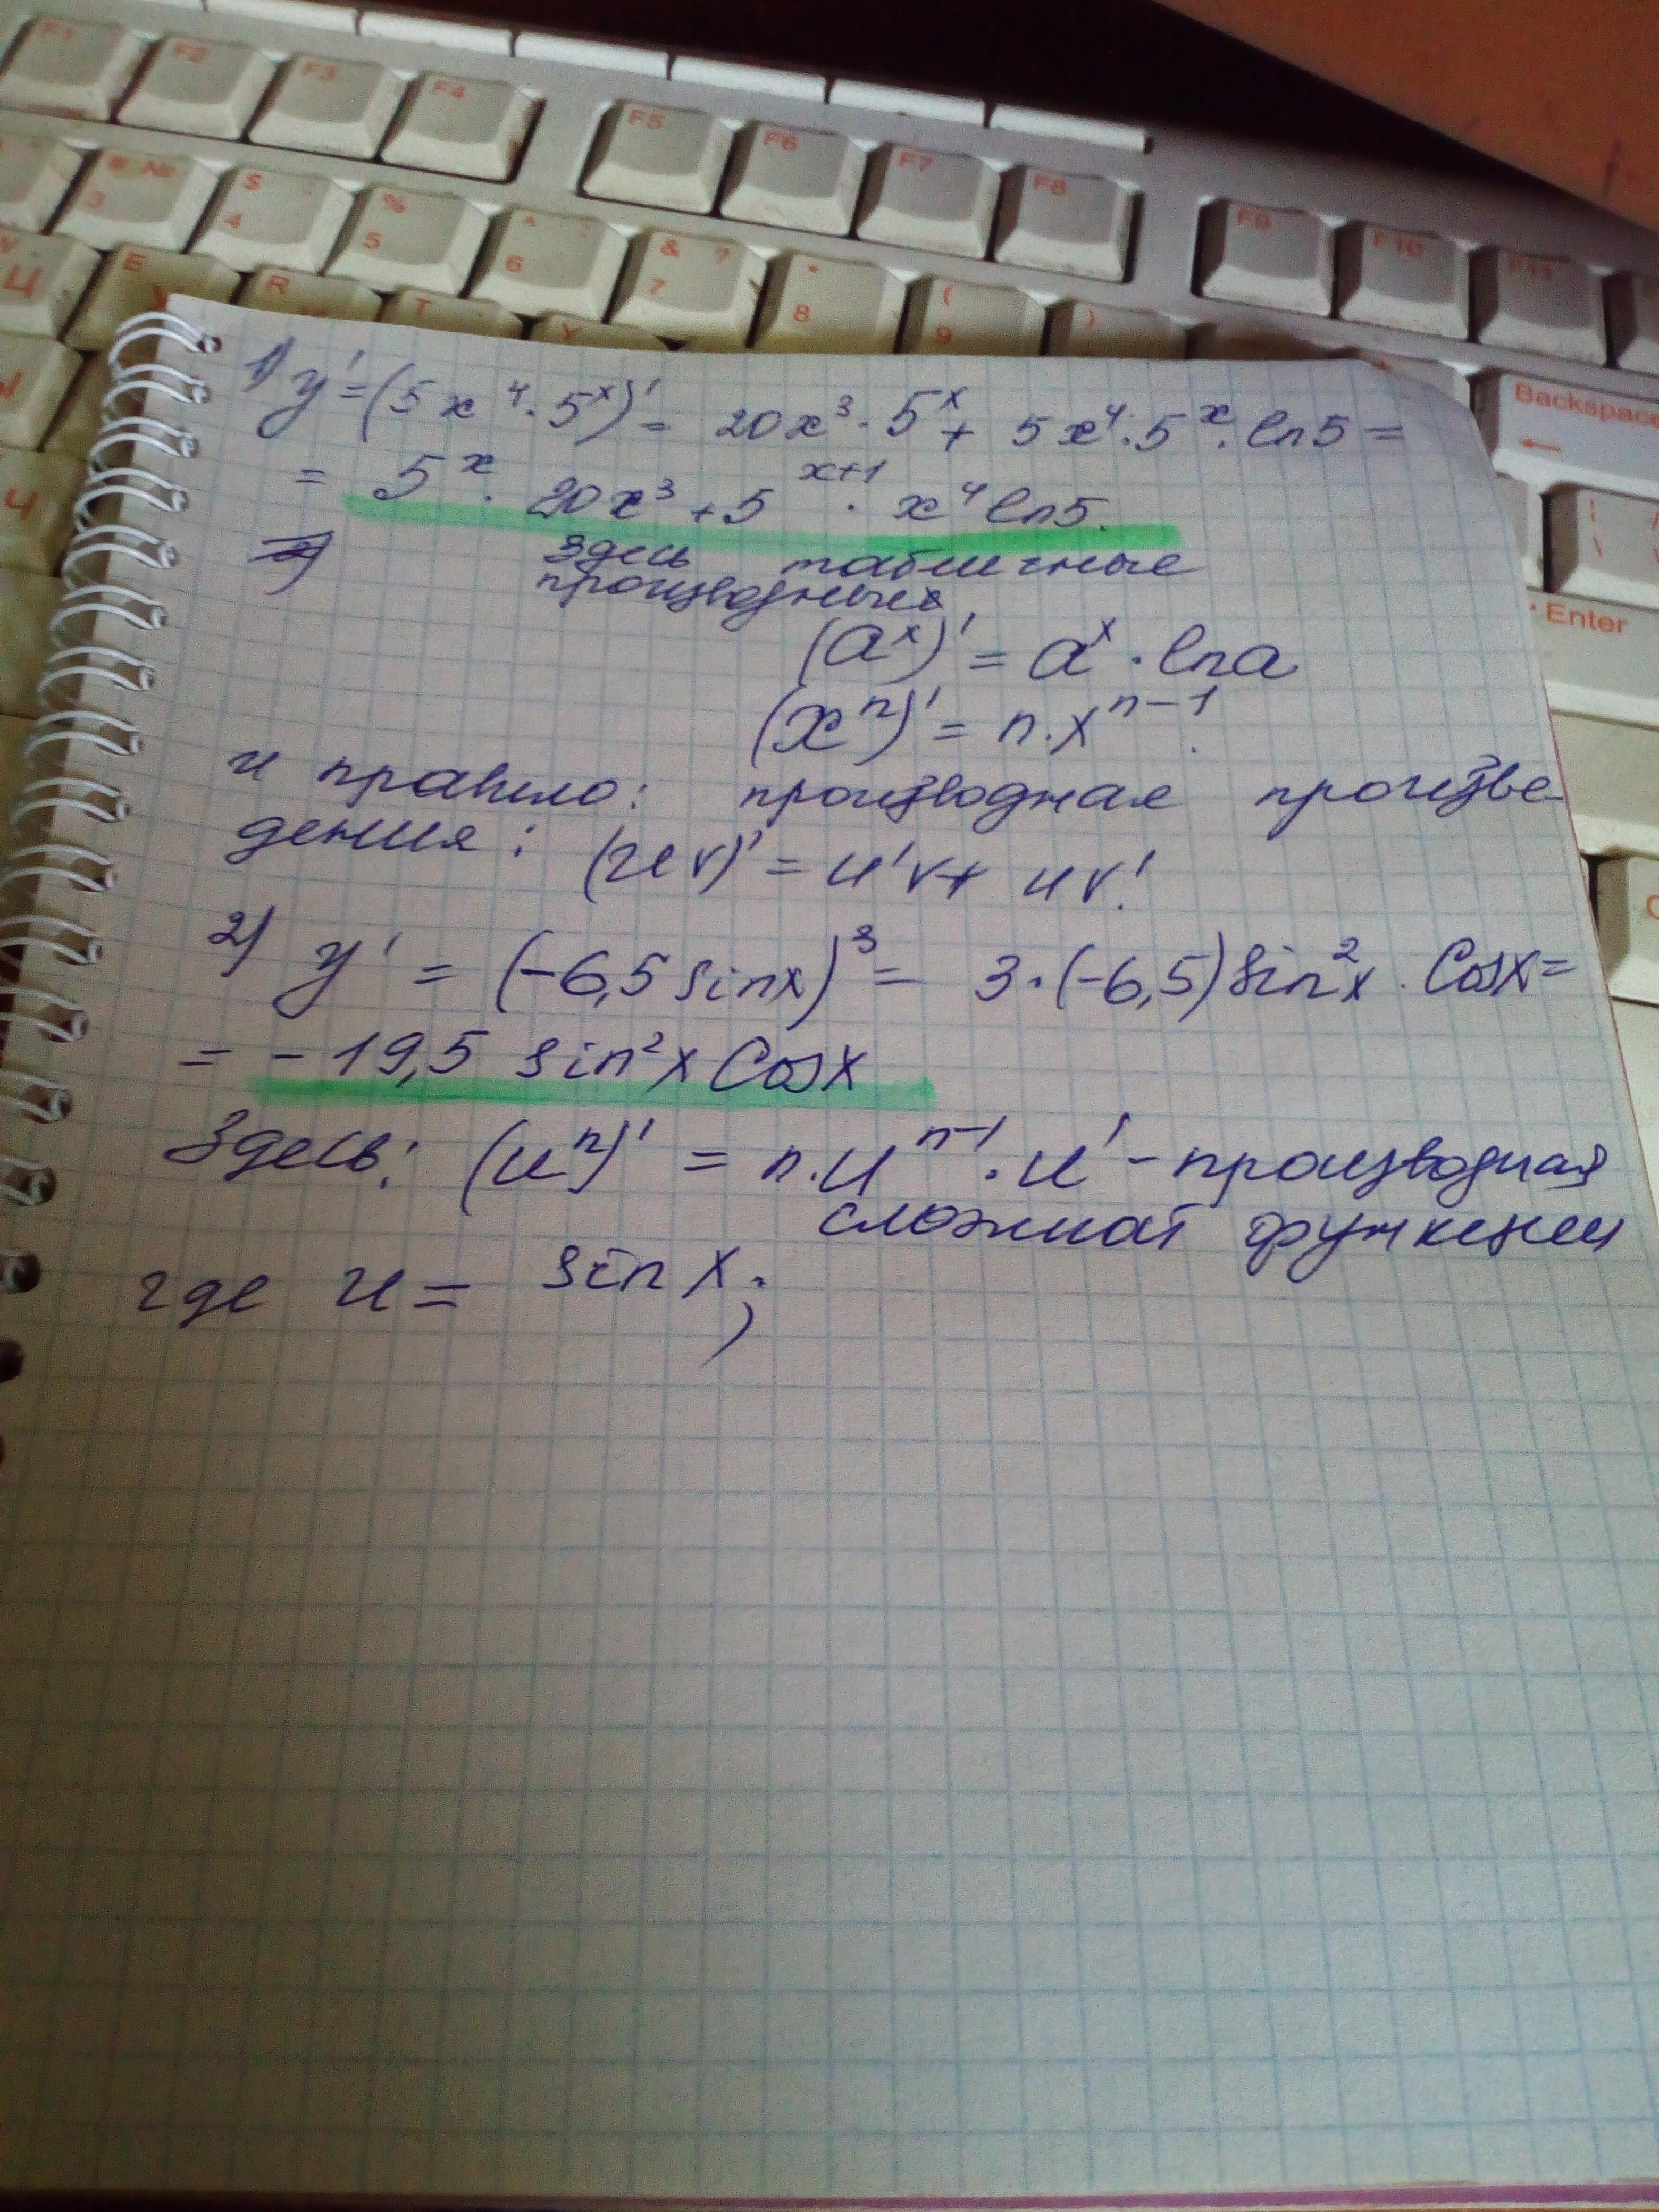 F1 F2 F3 F4 F5 F6 F7 F8 F9 F10 F11
* № 3 $ 4 % 5 ^ 6 & ? 7 * 8 ( 9 )
Ц E R T Y
Backspace
Enter
1) y' = (5x⁴·5ˣ)' = 20x³·5ˣ + 5x⁴·5ˣ·ln5 =
= 5ˣ·20x³ + 5ˣ⁺¹·x⁴ ln5.
здесь табличные
производные
(aˣ)' = aˣ·lna
(xⁿ)' = n·xⁿ⁻¹.
и правило: производная произве-
дения: (uv)' = u'v + uv'.
2) y' = (-6,5 sinx)³ = 3·(-6,5)sin²x·Cosx =
= -19,5 sin²x Cosx
Здесь: (uⁿ)' = n·uⁿ⁻¹·u' - производная
сложной функции
где u = sin x;